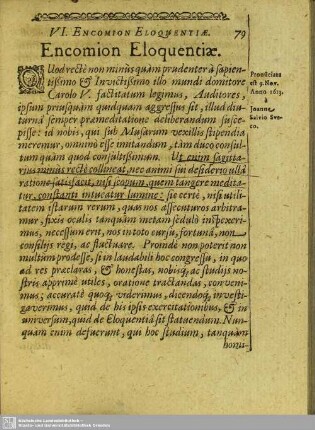 VI. ENCOMION ELOQUENTIÆ. 79
Encomion Eloquentiæ.
QUod rectè non minùs quàm prudenter à sapien-
tissimo & Invictissimo illo mundi domitore
Carolo V. factitatum legimus, Auditores,
ipsum priusquàm quidquam aggressus sit, illud diu-
turnâ semper præmeditatione deliberandum susce-
pisse: id nobis, qui sub Musarum vexillis stipendia
meremur, omninò esse imitandum, tàm duco consul-
tum quàm quod consultissimum. Ut enim sagitta-
rius minùs rectè collineat, nec animi sui desiderio ullâ
ratione satisfacit, nisi scopum, quem tangere medita-
tur, constanti intueatur lumine: sic certè, nisi utili-
tatem istarum rerum, quas nos assecuturos arbitra-
mur, fixis oculis tanquàm metam sedulò inspexeri-
mus, necessum erit, nos in toto cursu, fortunâ, non
consilijs regi, ac fluctuare. Proinde non poterit non
multùm prodesse, si in laudabili hoc congressu, in quo
ad res præclaras, & honestas, nobisq; ac studijs no-
stris apprimè utiles, oratione tractandas, conveni-
mus; accuratè quoq; viderimus, dicendoq; investi-
gaverimus, quid de his ipsis exercitationibus, & in
universum, quid de Eloquentiâ sit statuendum. Nun-
quàm enim defuerunt, qui hoc studium, tanquàm
honu-
Pronūciata
est 3. Nov.
Anno 1613.
à
Joanne
Salvio Sve-
co.